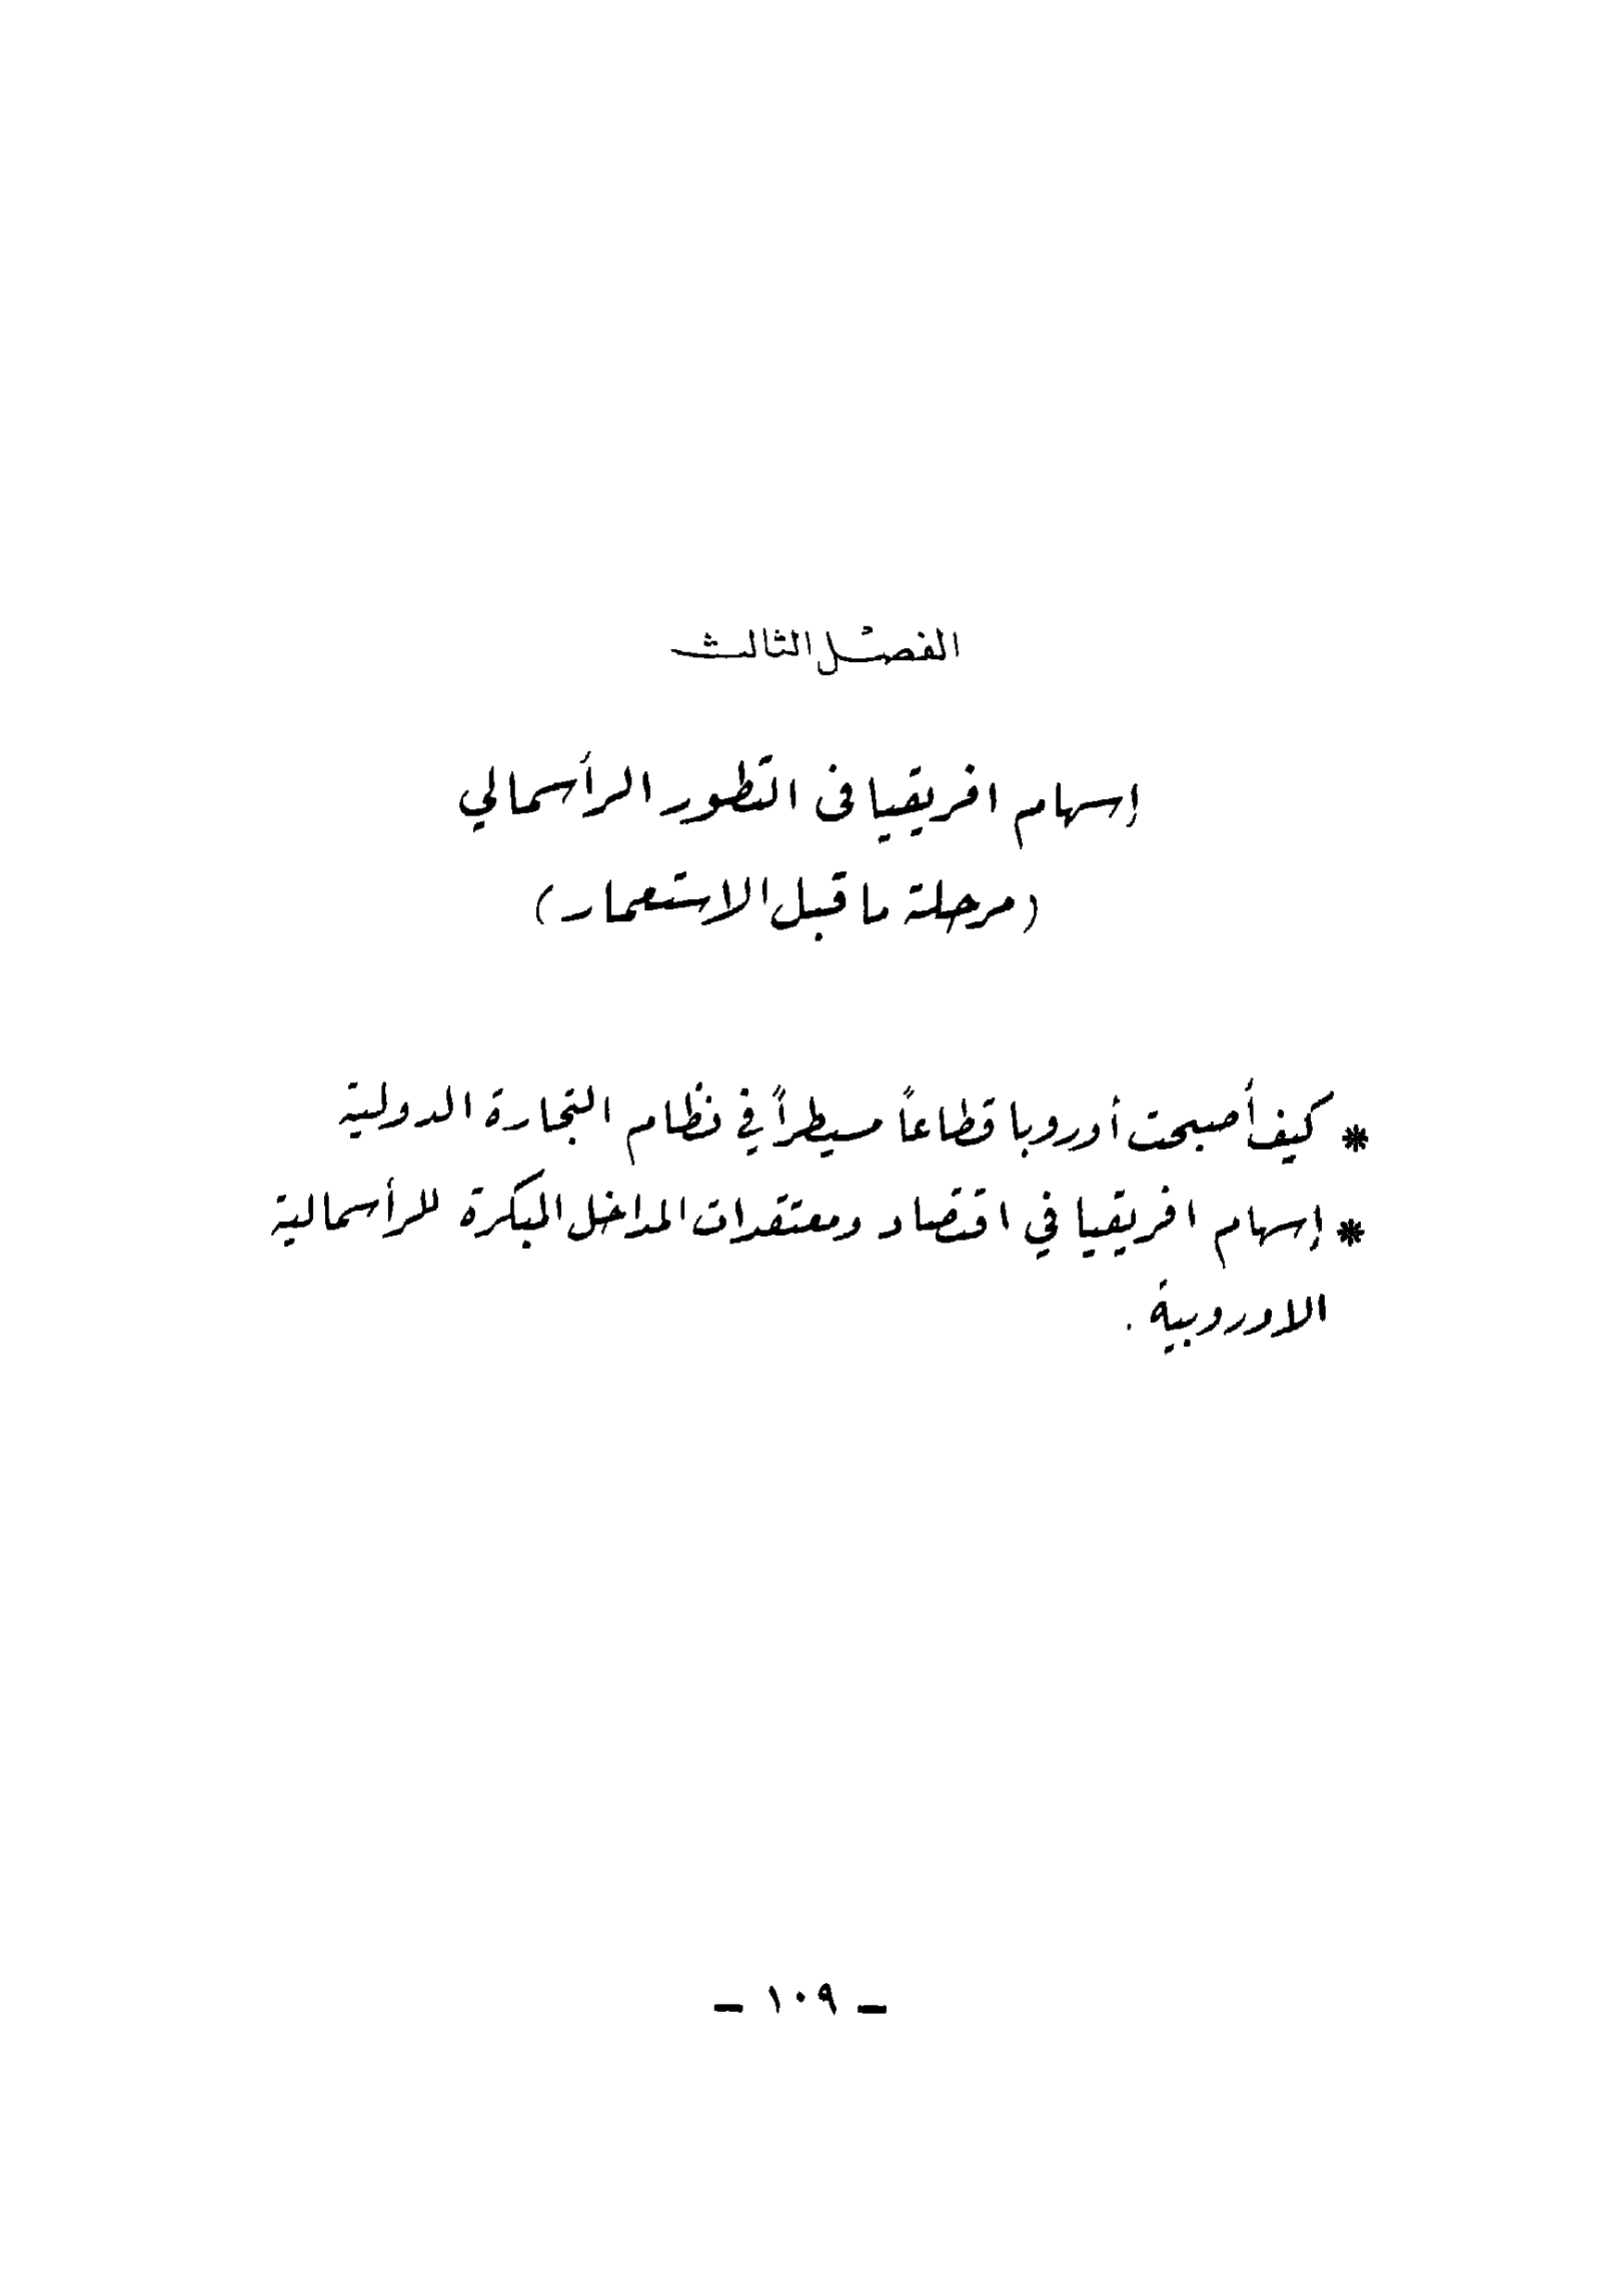 الفصل الثالث
إسهام افريقيا في التطور الرأسمالي
(مرحلة ما قبل الاستعمار)
* كيف أصبحت أوروبا قطاعاً مسيطراً في نظام التجارة الدولية
* إسهام افريقيا في اقتصاد ومعتقدات المداخل المبكرة للرأسمالية
الاوروبية .
– ١٠٩ –